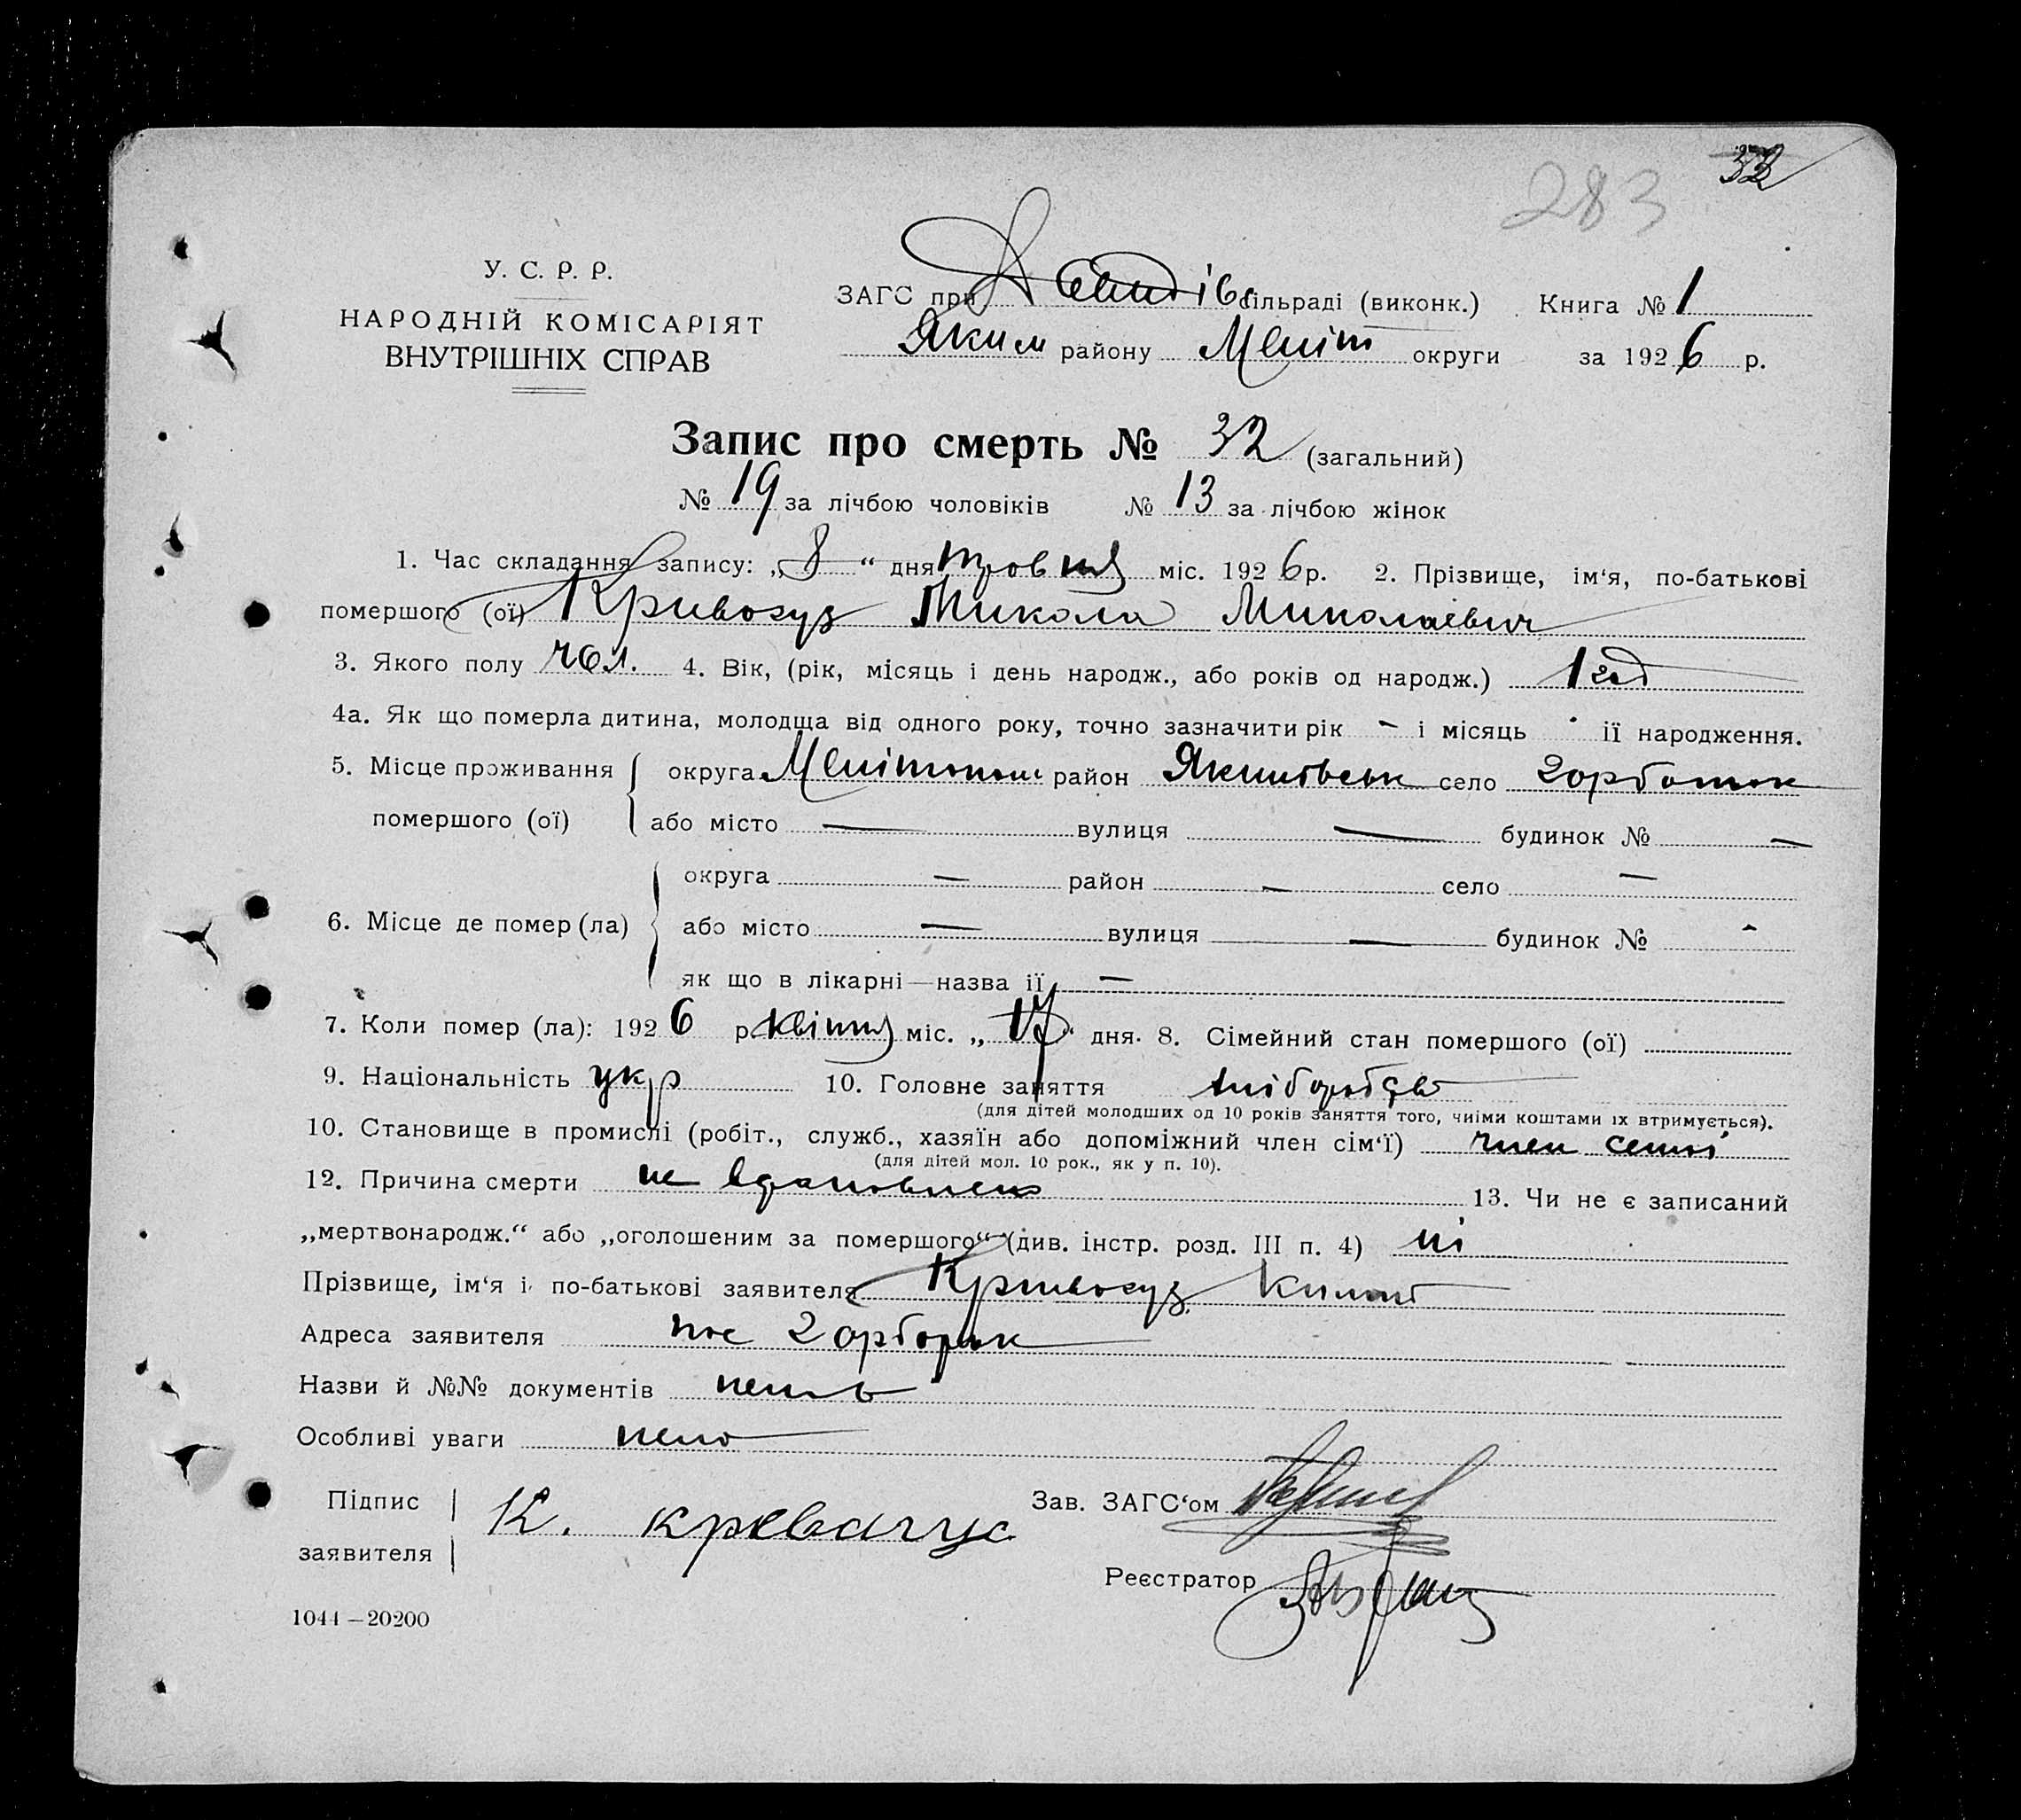 32
283
У. С. Р. Р.
НАРОДНІЙ КОМІСАРІЯТ
ВНУТРІШНІХ СПРАВ
ЗАГС при сільраді (виконк.) Книга № 1
Яким району Меліт округи за 1926 р.
Запис про смерть № 32 (загальний)
№ 19 за лічбою чоловіків № 13 за лічбою жінок
1. Час складання запису: „8“ дня травня міс. 1926 р. 2. Прізвище, ім‘я, по-батькові
помершого (ої) Кривохуз Микола Миколаєвич
3. Якого полу чол. 4. Вік, (рік, місяць і день народж., або років од народж.) 1 год
4а. Як що померла дитина, молодща від одного року, точно зазначити рік – і місяць її народження.
5. Місце проживання округа Мелітополь район Якимівськ село
помершого (ої) або місто — вулиця — будинок № —
округа — район — село —
6. Місце де помер (ла) або місто — вулиця — будинок № -
як що в лікарні—назва її —
7. Коли помер (ла): 1926 р. квітня міс. „17“ дня. 8. Сімейний стан помершого (ої)
9. Національність укр 10. Головне заняття хліборобство
(для дітей молодших од 10 років заняття того, чиїми коштами їх втримується).
10. Становище в промислі (робіт., служб., хазяїн або допоміжний член сім‘ї) член семьї
(для дітей мол. 10 рок., як у п. 10).
12. Причина смерти не вдановлено 13. Чи не є записаний
„мертвонародж.“ або „оголошеним за помершого“ (див. інстр. розд. III п. 4) ні
Прізвище, ім‘я і по-батькові заявителя Кривохуз Климт
Адреса заявителя пос
Назви й №№ документів нема
Особливі уваги нема
Підпис Зав. ЗАГС‘ом
К.
заявителя
Реєстратор
1044—20200